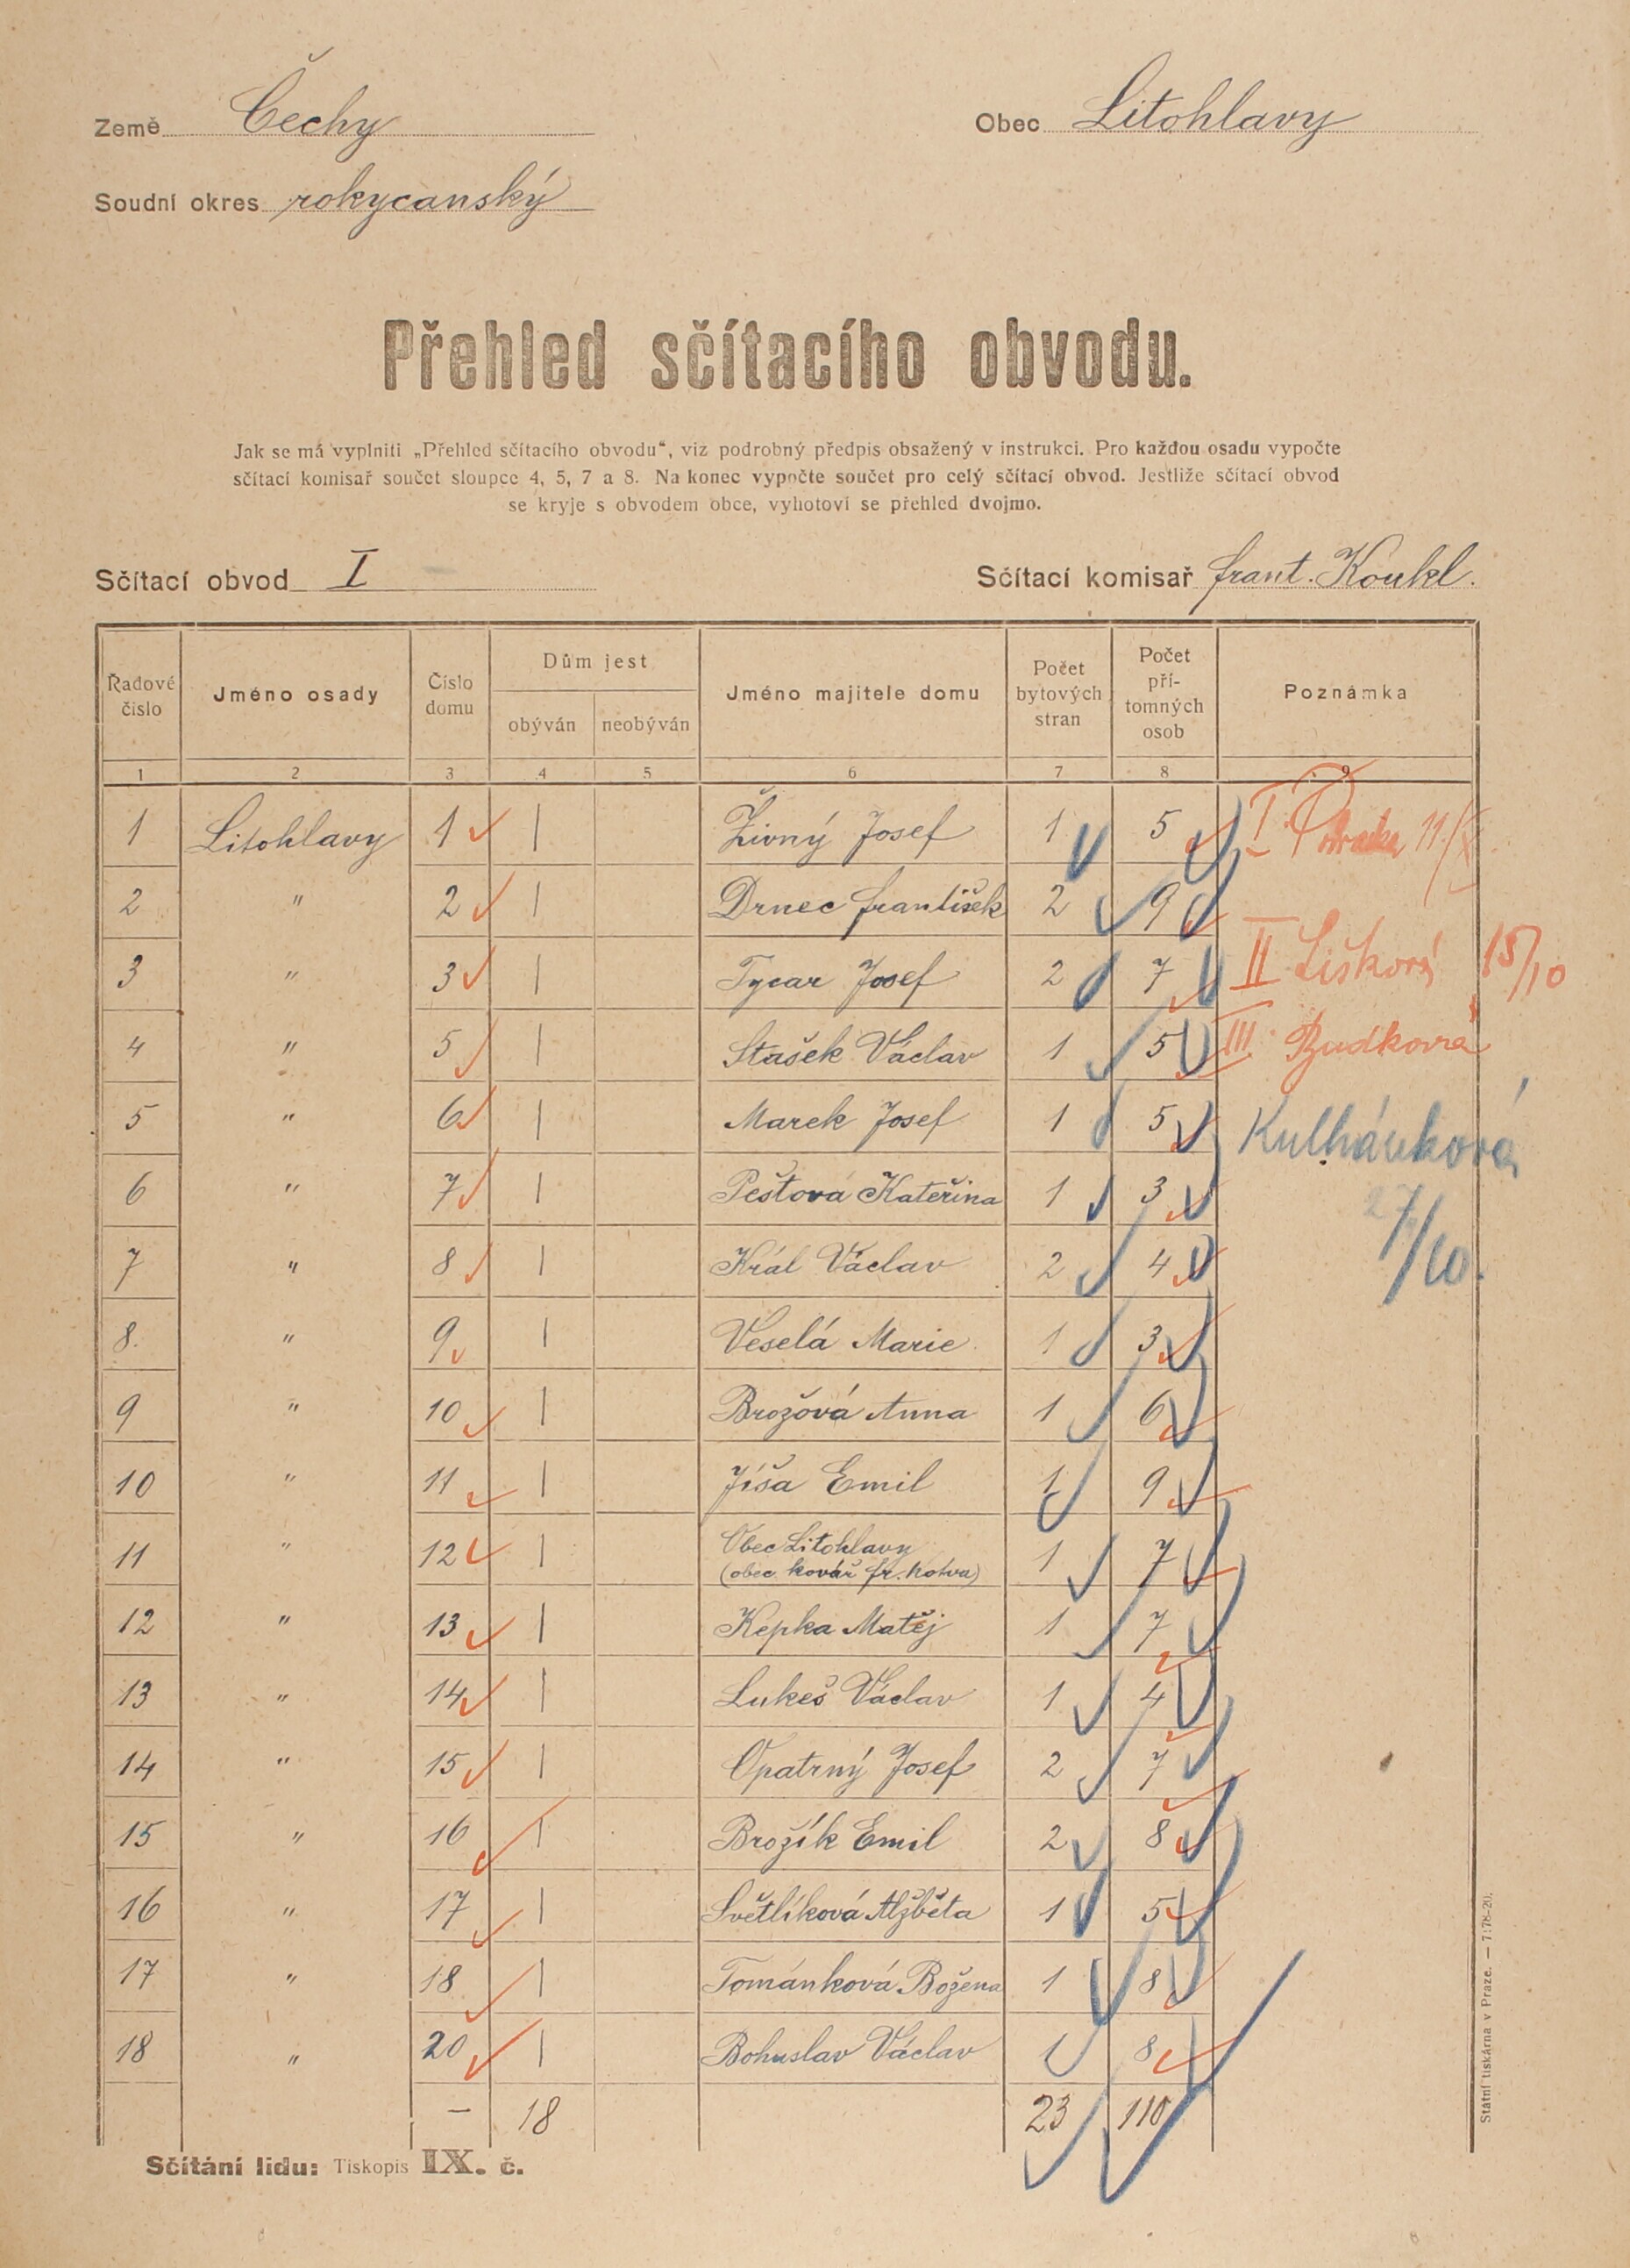 Země Čechy
Obec Litohlavy
Soudní okres rokycanský
Přehled sčítacího obvodu.
Jak se má vyplniti „Přehled sčítacího obvodu“, viz podrobný předpis obsažený v instrukci. Pro každou osadu vypočte
sčítací komisař součet sloupce 4, 5, 7 a 8. Na konec vypočte součet pro celý sčítací obvod. Jestliže sčítací obvod
se kryje s obvodem obce, vyhotoví se přehled dvojmo.
Sčítací obvod I
Sčítací komisař frant. Koukl.
Řadové číslo Jméno osady Číslo domu Dům jest obýván neobýván Jméno majitele domu Počet bytových stran Počet pří-tomných osob Poznámka
1 2 3 4 5 6 7 8 9
1 Litohlavy 1 1 Živný Josef 1 5 I 11/X
2 " 2 1 Drnec František 2 9
3 " 3 1 Tycar Josef 2 7 II Lišková 15/10
4 " 5 1 Stašek Václav 1 5 III Budková
5 " 6 1 Marek Josef 1 5 Kulhánková
6 " 7 1 Peštová Kateřina 1 3 27/10.
7 " 8 1 Král Václav 2 4
8. " 9 1 Veselá Marie 1 3
9 " 10 1 Brožová Anna 1 6
10 " 11 1 Jíša Emil 1 9
11 " 12 1 Obec Litohlavy (obec. kovář fr. Kotva) 1 7
12 " 13 1 Kepka Matěj 1 7
13 " 14 1 Lukeš Václav 1 4
14 " 15 1 Opatrný Josef 2 7
15 " 16 1 Brožík Emil 2 8
16 " 17 1 Světlíková Alžběta 1 5
17 " 18 1 Tománková Božena 1 8
18 " 20 1 Bohuslav Václav 1 8
— 18 23 110
Sčítání lidu: Tiskopis IX. č.
Státní tiskárna v Praze. — 7178-20.